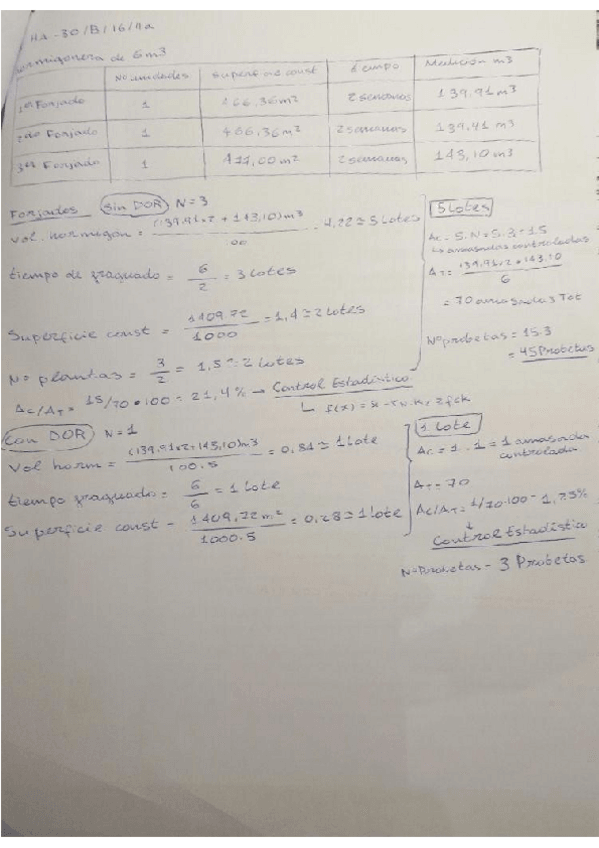 HA-30/B/16/IIa
Hormigonera de 6m3
No unidades Superficie const tiempo Medición m3
1er Forjado 1 466,36m2 2 semanas 139,91m3
2do Forjado 1 466,36m2 2 semanas 139,91 m3
3er Forjado 1 477,00m2 2 semanas 143,10m3
Forjados sin DOR N=3
Vol. hormigón = (139,91x2 + 143,10)m3 / 4,22 ≅ 5 Lotes
tiempo de fraguado = 6/2 = 3 Lotes
Superficie const = 1409.72/1000 = 1,4 ≅ 2 Lotes
Nº plantas = 3/2 = 1,5 ≅ 2 Lotes
Ac/AT = 15/70 • 100 = 21,4% → Control Estadístico
5 Lotes
Ac = 5.N = 5.3 = 15
↳ amasadas controladas
AT = 139,91x2+143,10 / 6
= 70 amasadas Tot
Nº probetas = 15.3
= 45 Probetas
Con DOR N=1
Vol horm = (139,91x2+143,10)m3 / 100.5 = 0,84 ≅ 1 Lote
tiempo fraguado = 6/6 = 1 Lote
Superficie const = 1409,72 m2 / 1000.5 = 0,28 ≅ 1 lote
1 Lote
Ac = 1 . 1 = 1 amasada
controlada
AT = 70
Ac/AT = 1/70.100 =
Control Estadístico
Nº Probetas = 3 Probetas